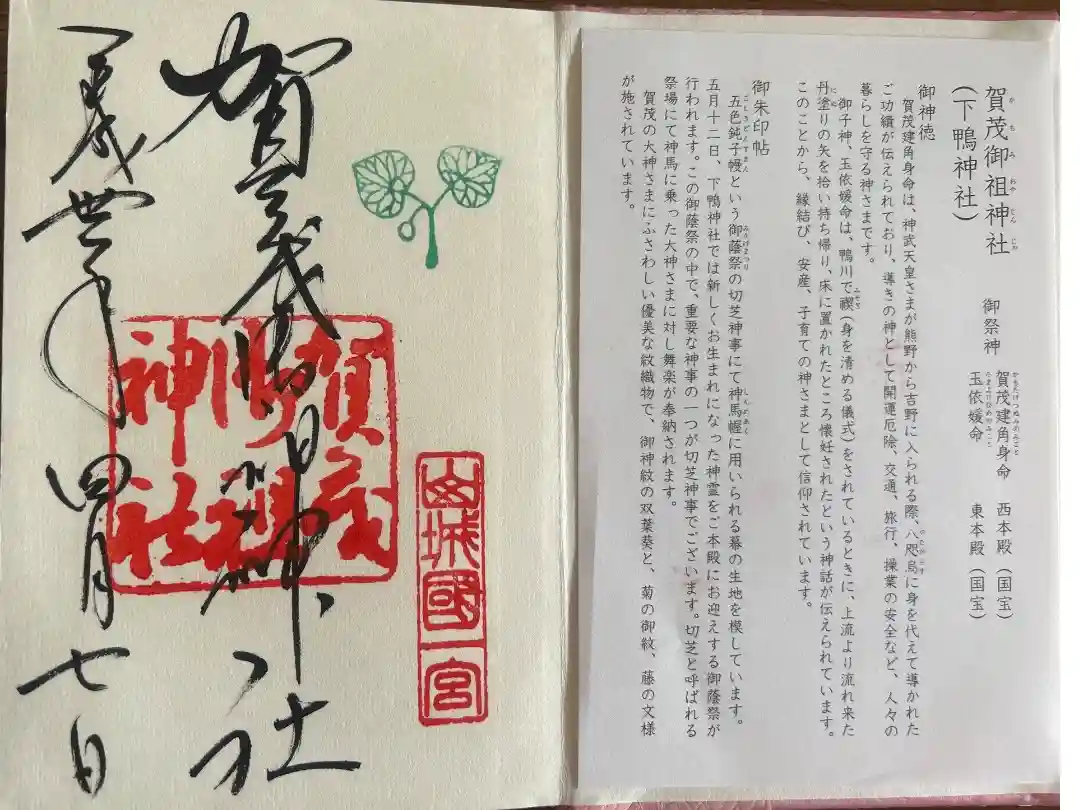 賀茂御祖神社
かもみおやじんじゃ
(下鴨神社)
御祭神
賀茂建角身命　西本殿(国宝)
かもたけつぬみのみこと
玉依媛命　東本殿(国宝)
たまよりひめのみこと
御神徳
賀茂建角身命は、神武天皇さまが熊野から吉野に入られる際、八咫烏に身を代えて導かれた
やたがらす
ご功績が伝えられており、導きの神として開運厄除、交通、旅行、操業の安全など、人々の
暮らしを守る神さまです。
御子神、玉依媛命は、鴨川で禊(身を清める儀式)をされているときに、上流より流れ来た
みそぎ
丹塗りの矢を拾い持ち帰り、床に置かれたところ懐妊されたという神話が伝えられています。
にぬ
このことから、縁結び、安産、子育ての神さまとして信仰されています。
御朱印帖
五色鈍子幔という御蔭祭の切芝神事にて神馬幄に用いられる幕の生地を模しています。
ごしきどんすまん
みかげまつり
しんめあく
五月十二日、下鴨神社では新しくお生まれになった神霊をご本殿にお迎えする御蔭祭が
行われます。この御蔭祭の中で、重要な神事の一つが切芝神事でございます。切芝と呼ばれる
祭場にて神馬に乗った大神さまに対し舞楽が奉納されます。
賀茂の大神さまにふさわしい優美な紋織物で、御神紋の双葉葵と、菊の御紋、藤の文様
が施されています。
山城國一宮
賀茂御祖神社
賀茂御祖神社
平成卅年四月七日